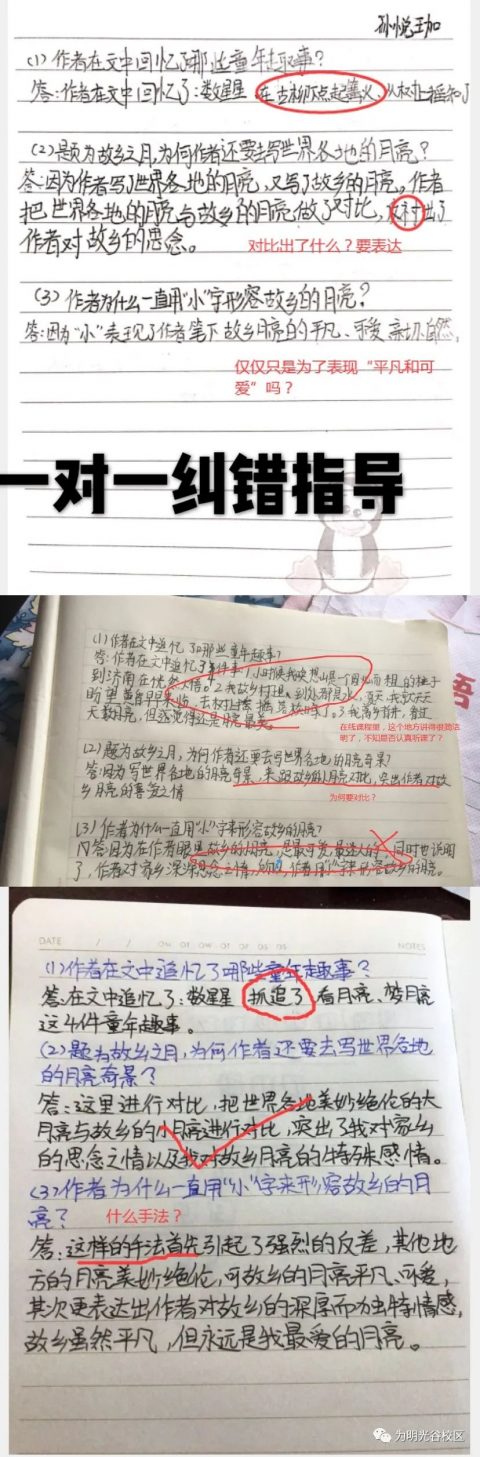 孙悦珈
(1)作者在文中回忆了哪些童年趣事?
答:作者在文中回忆了:数星星、在古柳下点起篝火、从树上摇知了
(2)题为故乡之月,为何作者还要去写世界各地的月亮?
答:因为作者写了世界各地的月亮,又写了故乡的月亮。作者
把世界各地的月亮与故乡的月亮做了对比,反衬出了
作者对故乡的思念。
对比出了什么?要表达
(3)作者为什么一直用"小"字形容故乡的月亮?
答:因为"小"表现了作者笔下故乡月亮的平凡、可爱、亲切自然,
仅仅只是为了表现“平凡和可
爱”吗?
一对一纠错指导
(1)作者在文中追忆了哪些童年趣事?
答:作者在文中追忆了3件事:1.小时候我幻想山是一个
到济南在恍然大悟。2.我故乡村
盼望黄昏早早来临,去树上
天数月亮,但还觉得还是月亮最美。
在线课程里,这个地方讲得很简洁
明了,不知是否认真听课了?
(2)题为故乡之月,为何作者还要去写世界各地的月亮奇景?
答:因为写世界各地的月亮奇景,来跟故乡的月亮对比,突出作者对故
乡月亮的喜爱之情
为何要对比?
(3)作者为什么一直用"小"字来形容故乡的月亮?
答:因为在作者眼里故乡的月亮,是最可爱最迷人的,同时也说明
了,作者对家乡深深思念之情,作者用"小"字来形容故乡的月亮。
DATE / / NOTES
(1)作者在文中追忆了哪些童年趣事?
答:在文中追忆了:数星星 抓追了 看月亮、梦月亮
这4件童年趣事。
(2)题为故乡之月,为何作者还要去写世界各地
的月亮奇景?
答:这里进行对比,把世界各地美妙绝伦的大
月亮与故乡的小月亮进行对比,突出了我对家乡
的思念之情以及我对故乡月亮的特殊感情。
(3)作者为什么一直用"小"字来形容故乡的月
亮?
什么手法?
答:这样的手法首先引起了强烈的反差,其他地
方的月亮美妙绝伦,可故乡的月亮平凡、可爱,
其次更表达出作者对故乡的深厚而独特情感,
故乡虽然平凡,但永远是我最爱的月亮。
为明光谷校区